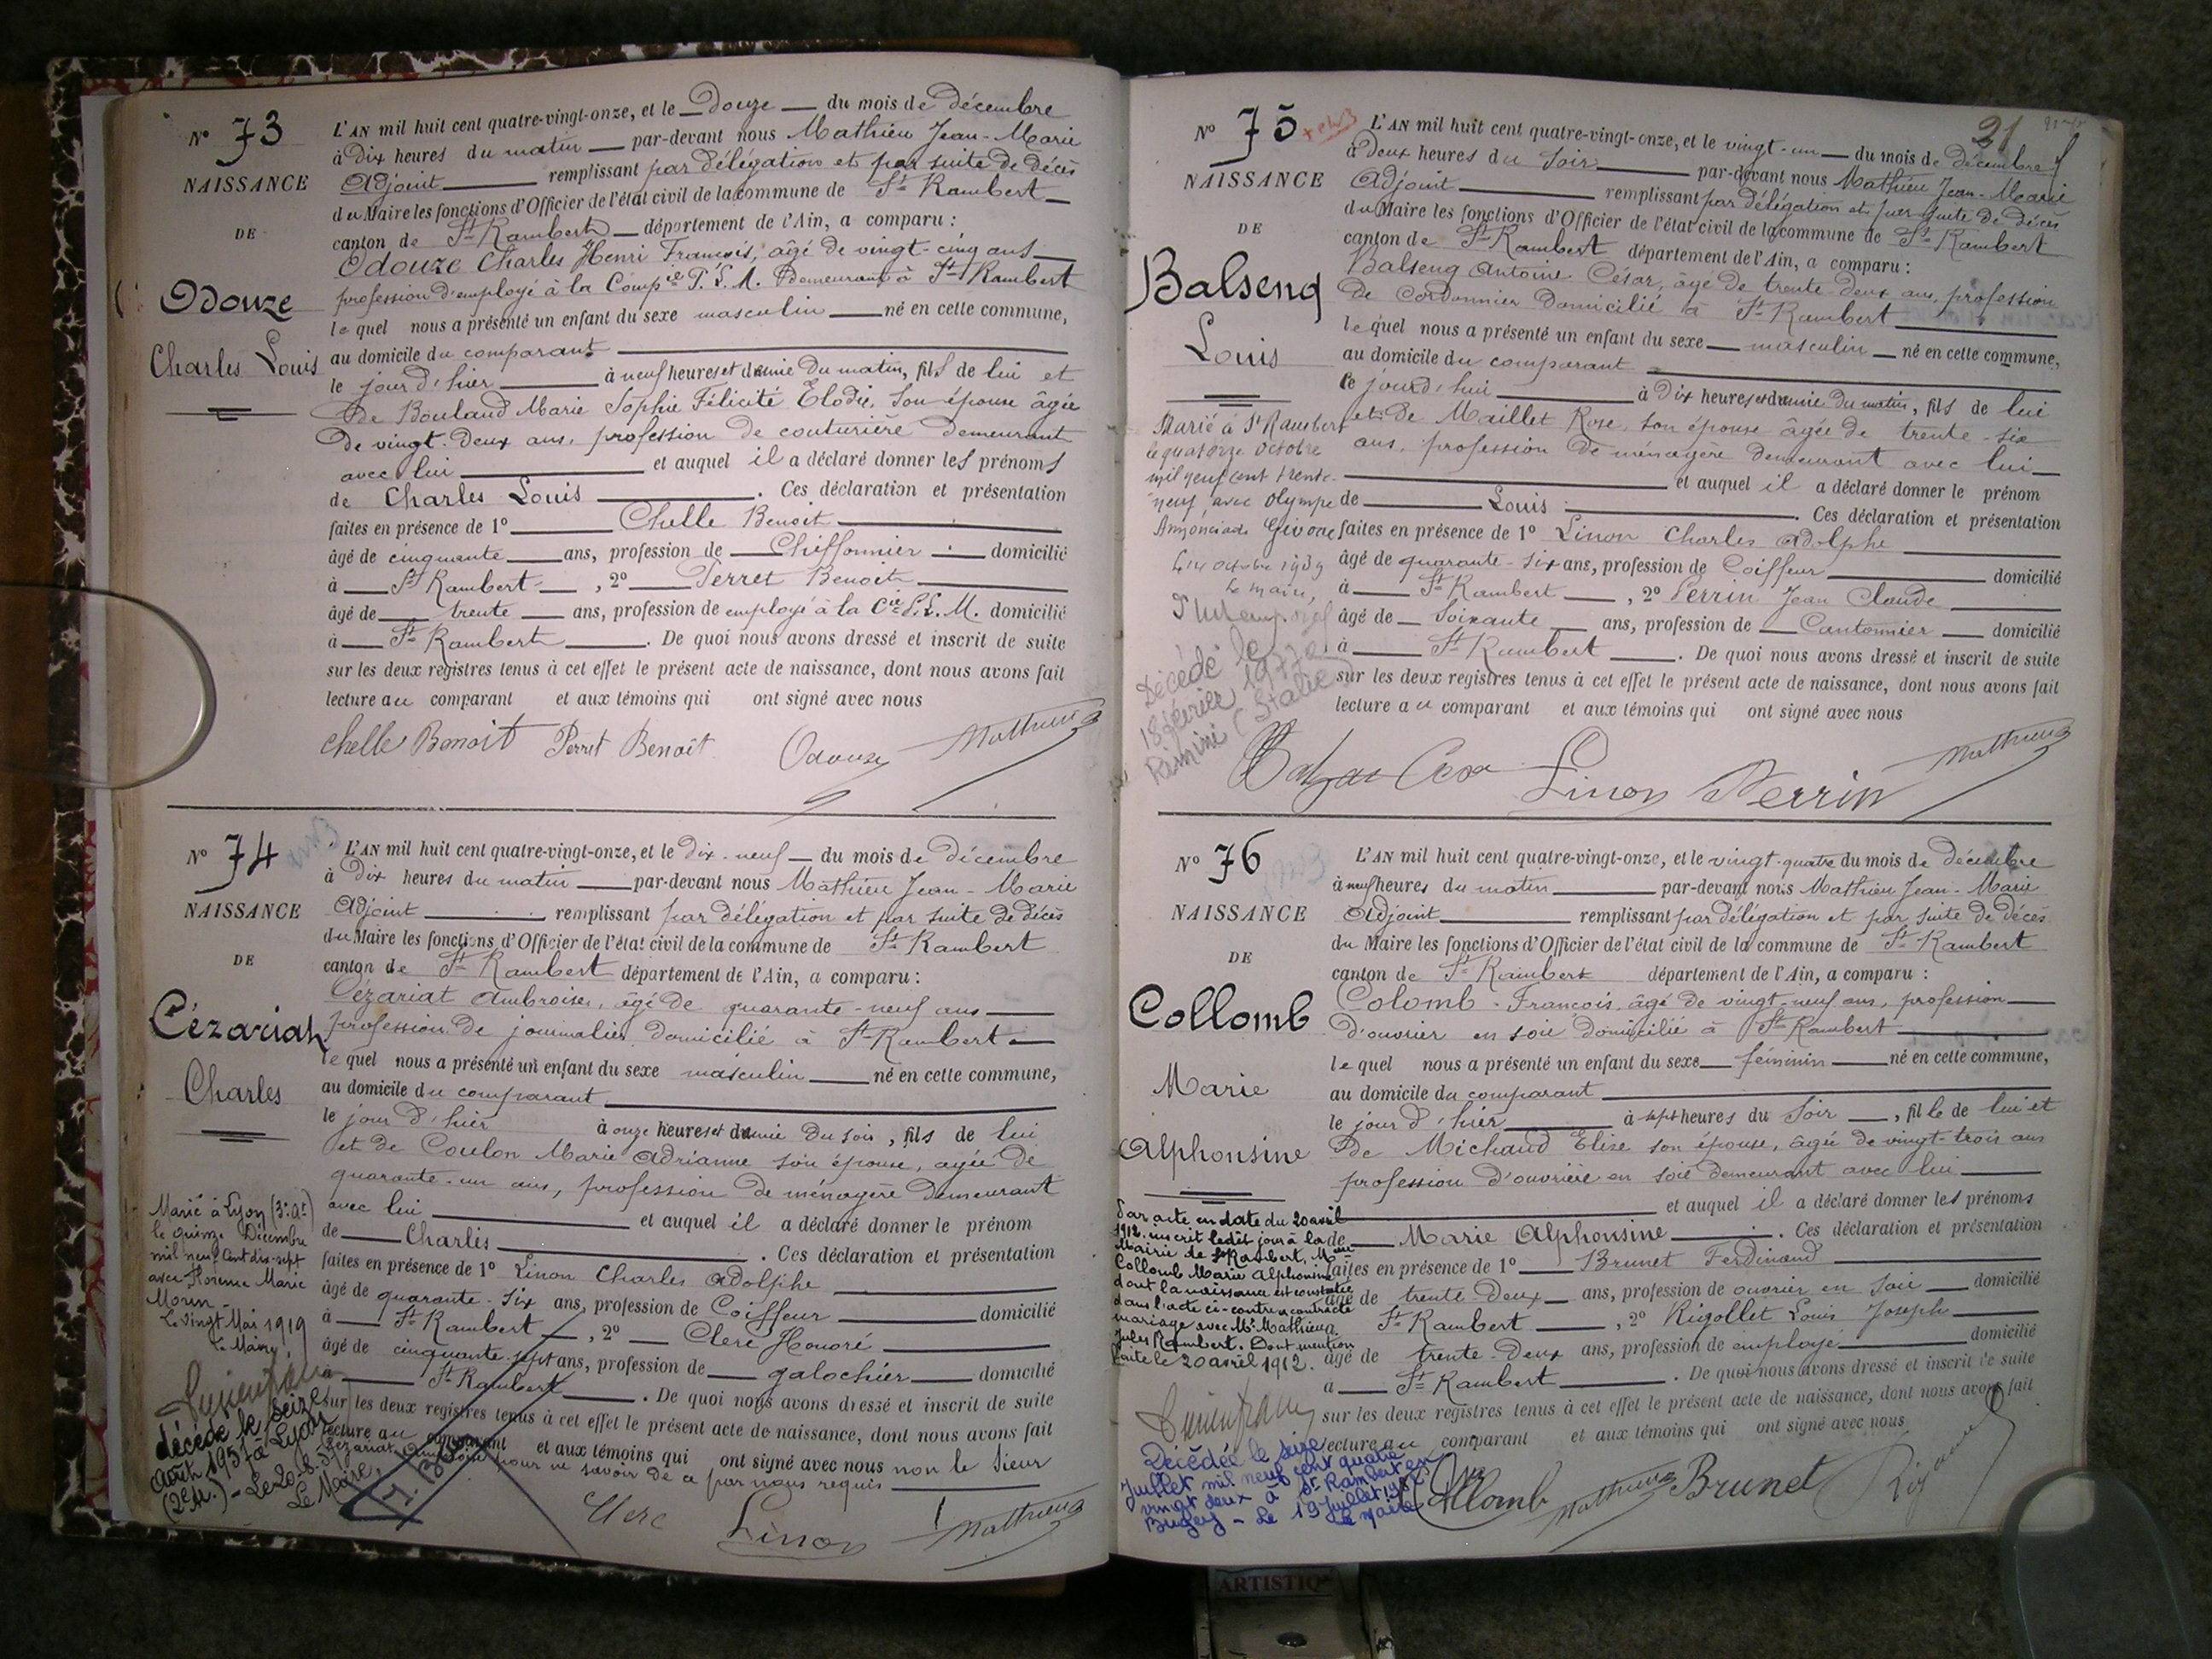 N° 73
NAISSANCE
DE
Odouze
Charles Louis
L'AN mil huit cent quatre-vingt-onze, et le Douze du mois de décembre
à Dix heures du matin par-devant nous Mathieu Jean-Marie
Adjoint remplissant par délégation et par suite de décès
du Maire les fonctions d'Officier de l'état civil de la commune de St Rambert
canton de St Rambert département de l'Ain, a comparu :
Odouze Charles Henri François, âgé de vingt-cinq ans
profession d'employé à la Compie P. L. M. Demeurant à St Rambert
lequel nous a présenté un enfant du sexe masculin né en cette commune,
au domicile du comparant
le jour d'hier à neuf heures et demie du matin, fils de lui et
de Bouland Marie Sophie Félicité Elodie, son épouse âgée
de vingt-deux ans, profession de couturière demeurant
avec lui et auquel il a déclaré donner les prénoms
de Charles Louis. Ces déclaration et présentation
faites en présence de 1° Chelle Benoit
âgé de cinquante ans, profession de Chiffonnier domicilié
à St Rambert, 2° Perret Benoit
âgé de trente ans, profession de employé à la Cie P. L. M. domicilié
à St Rambert. De quoi nous avons dressé et inscrit de suite
sur les deux registres tenus à cet effet le présent acte de naissance, dont nous avons fait
lecture au comparant et aux témoins qui ont signé avec nous
Chelle Benoit Perret Benoit Odouze Mathieu
N° 74
NAISSANCE
DE
Cézariat
Charles
L'AN mil huit cent quatre-vingt-onze, et le dix-neuf du mois de décembre
à Dix heures du matin par-devant nous Mathieu Jean-Marie
Adjoint remplissant par délégation et par suite de décès
du Maire les fonctions d'Officier de l'état civil de la commune de St Rambert
canton de St Rambert département de l'Ain, a comparu :
Cézariat Ambroise, âgé de quarante-neuf ans
profession de journalier domicilié à St Rambert
lequel nous a présenté un enfant du sexe masculin né en cette commune,
au domicile du comparant
le jour d'hier à onze heures et demie du soir, fils de lui
et de Coulon Marie Adrianne son épouse, agée de
quarante-un ans, profession de ménagère demeurant
avec lui et auquel il a déclaré donner le prénom
de Charles. Ces déclaration et présentation
faites en présence de 1° Linon Charles Adolphe
âgé de quarante-six ans, profession de Coiffeur domicilié
à St Rambert, 2° Clerc Honoré
âgé de cinquante sept ans, profession de galochier domicilié
à St Rambert. De quoi nous avons dressé et inscrit de suite
sur les deux registres tenus à cet effet le présent acte de naissance, dont nous avons fait
lecture au comparant et aux témoins qui ont signé avec nous non le sieur
Cézariat pour ne savoir de ce par nous requis
Clerc Linon Mathieu
Marié à Lyon (3e at)
le quinze Décembre
mil neuf cent dix-sept
avec Florence Marie
Morin
Le vingt Mai 1919
Le Maire,
décédé le seize
Août 1957 à Lyon
(2e A.) - Le 20-8-57
Le Maire,
N° 75
NAISSANCE
DE
Balseng
Louis
21
L'AN mil huit cent quatre-vingt-onze, et le vingt-un du mois de décembre
à deux heures du soir par-devant nous Mathieu Jean-Marie
Adjoint remplissant par délégation et par suite de décès
du Maire les fonctions d'Officier de l'état civil de la commune de St Rambert
canton de St Rambert département de l'Ain, a comparu :
Balseng Antoine César, âgé de trente-deux ans, profession
de Cordonnier domicilié à St Rambert
lequel nous a présenté un enfant du sexe masculin né en cette commune,
au domicile du comparant
ce jourd'hui à dix heures et demie du matin, fils de lui
et de Maillet Rose, son épouse âgée de trente-six
ans, profession de ménagère demeurant avec lui
et auquel il a déclaré donner le prénom
de Louis. Ces déclaration et présentation
faites en présence de 1° Linon Charles Adolphe
âgé de quarante-six ans, profession de Coiffeur domicilié
à St Rambert, 2° Perrin Jean Claude
âgé de soixante ans, profession de Cantonnier domicilié
à St Rambert. De quoi nous avons dressé et inscrit de suite
sur les deux registres tenus à cet effet le présent acte de naissance, dont nous avons fait
lecture au comparant et aux témoins qui ont signé avec nous
Linon Perrin Mathieu
Marié à St Rambert
le quatorze Octobre
mil neuf cent trente-
neuf, avec Olympe
Annonciade Givone
Le 14 octobre 1939
Le maire,
Décédé le
18 février 1977 à
Rimini (Italie)
N° 76
NAISSANCE
DE
Collomb
Marie
Alphonsine
L'AN mil huit cent quatre-vingt-onze, et le vingt-quatre du mois de décembre
à neuf heures du matin par-devant nous Mathieu Jean-Marie
Adjoint remplissant par délégation et par suite de décès
du Maire les fonctions d'Officier de l'état civil de la commune de St Rambert
canton de St Rambert département de l'Ain, a comparu :
Colomb François, âgé de vingt-neuf ans, profession
d'ouvrier en soie domicilié à St Rambert
lequel nous a présenté un enfant du sexe féminin né en cette commune,
au domicile du comparant
le jour d'hier à sept heures du soir, fille de lui et
de Michaud Elise son épouse, âgée de vingt-trois ans
profession d'ouvrière en soie demeurant avec lui
et auquel il a déclaré donner les prénoms
de Marie Alphonsine. Ces déclaration et présentation
faites en présence de 1° Brunet Ferdinand
âgé de trente deux ans, profession de ouvrier en soie domicilié
à St Rambert, 2° Rigollet Louis Joseph
âgé de trente-deux ans, profession de employé domicilié
à St Rambert. De quoi nous avons dressé et inscrit de suite
sur les deux registres tenus à cet effet le présent acte de naissance, dont nous avons fait
lecture au comparant et aux témoins qui ont signé avec nous
Collomb Mathieu Brunet
Par acte en date du 20 avril
1912, inscrit ledit jour à la
Mairie de St Rambert, Melle
Collomb Marie Alphonsine
dont la naissance est constatée
dans l'acte ci-contre a contracté
mariage avec Mr Mathieu
Jules Rambert. Dont mention
faite le 20 avril 1912.
Décédée le seize
Juillet mil neuf cent quatre
vingt deux à St Rambert en
Bugey - Le 19 Juillet 1982
Le Maire
ARTISTIQ